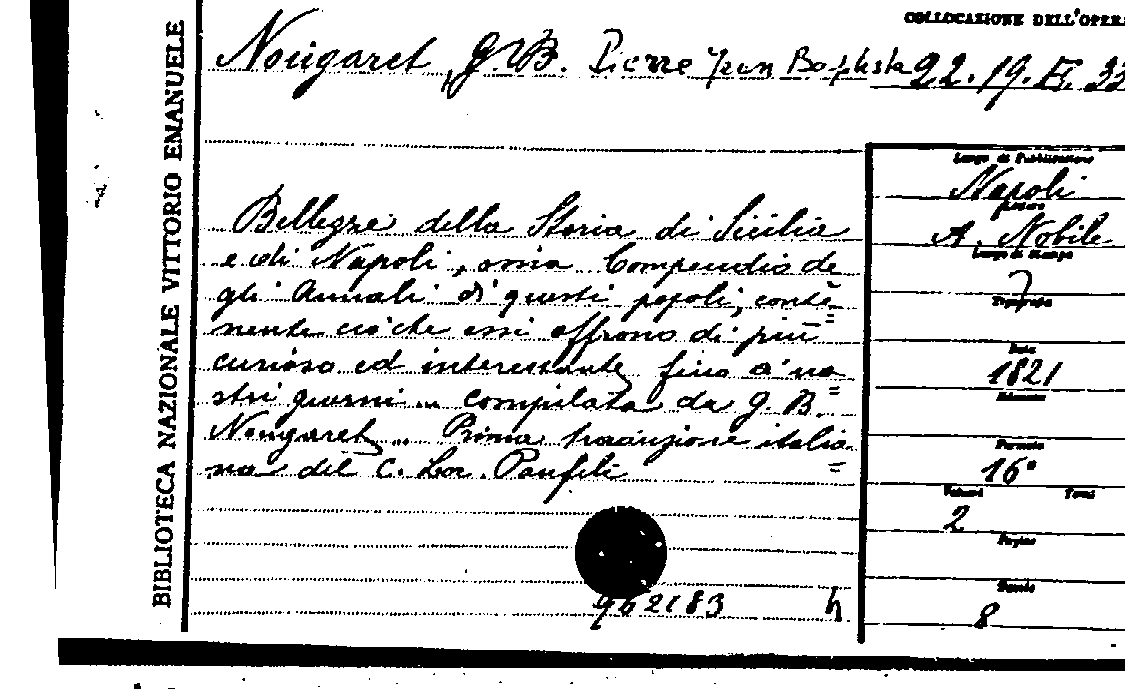 COLLOCAZIONE DELL'OPERA
Nougaret G. B. Pierre Jean Baptista 22. 19. F. 33
BIBLIOTECA NAZIONALE VITTORIO EMANUELE
Bellezze della Storia di Sicilia
e di Napoli, ossia Compendio de
gli Annali di questi popoli, conte=
nente ciò che essi offrono di più
curioso ed interessante fino a' no=
stri giorni .. compilata da G. B.
Nougaret .. Prima traduzione italia=
na del C. Lor. Panfili
962183 h
Luogo di Pubblicazione
Napoli
Editore
A. Nobile
Luogo di Stampa
Tipografia
Data
1821
Edizione
Formato
16°
Volumi Tomi
2
Pagine
Tavole
8